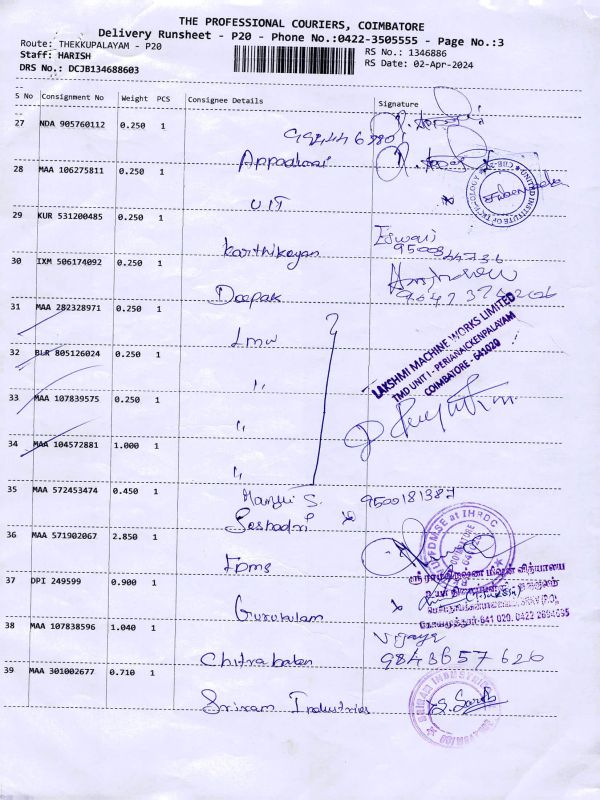 THE PROFESSIONAL COURIERS, COIMBATORE
Delivery Runsheet - P20 - Phone No.:0422-3505555 - Page No.:3
Route: THEKKUPALAYAM - P20
RS No.: 1346886
Staff: HARISH
RS Date: 02-Apr-2024
DRS No.: DCJB134688603
S No Consignment No Weight PCS Consignee Details Signature
27 NDA 905760112 0.250 1
Appadurai
28 MAA 106275811 0.250 1
UIT
UNITED INSTITUTE OF TECHNOLOGY
29 KUR 531200485 0.250 1
Karthikeyan
Eswari
30 IXM 506174092 0.250 1
Deepak
31 MAA 282328971 0.250 1
LMW
LAKSHMI MACHINE WORKS LIMITED
TMD UNIT I - PERIANAICKENPALAYAM
COIMBATORE - 641020
32 BLR 805126024 0.250 1
"
33 MAA 107839575 0.250 1
"
34 MAA 104572881 1.000 1
"
35 MAA 572453474 0.450 1
Manju S. 9500181387
Seshadri
36 MAA 571902067 2.850 1
FDMSE at IHRDC
ஸ்ரீ ராமகிருஷ்ண மிஷன் வித்யாலய
37 DPI 249599 0.900 1
Gurukulam
கோயமுத்தூர்-641 020.
38 MAA 107838596 1.040 1
Vijaya
Chitrabalan
9843657626
39 MAA 301002677 0.710 1
Sriram Industries
SRIRAM INDUSTRIES
COIMBATORE